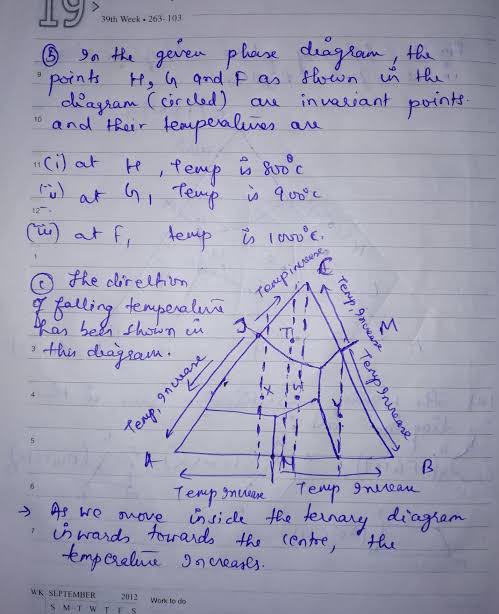 19
39th Week • 263-103
⑤ In the geven phase diagram, the
9
points H, G and F as shown in the
diagram (circled) are invariant points.
10
and their temperatures are
11
(i) at H, Temp is 800°C
(ii) at G, Temp is 900°C
12
(iii) at F, temp is 1000°C.
1
ⓒ The direction
of falling temperature
has been shown in
3
this diagram.
Temp increase
C
Temp, Increase
M
J
T
Temp Increase
4
X
S
Y
Temp, Increase
5
A
N
B
6
Temp Increase
Temp Increase
→ As we move inside the ternary diagram
7
inwards towards the centre, the
temperature increases.
WK SEPTEMBER 2012 Work to do
S M T W T F S